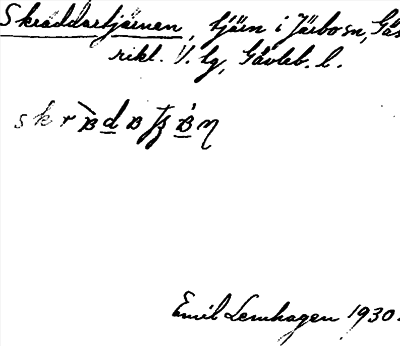 Skräddartjärnen, tjärn i Järbo sn, Gäs
rikl. V. lg, Gävleb. l.
Emil Lernhagen 1930.